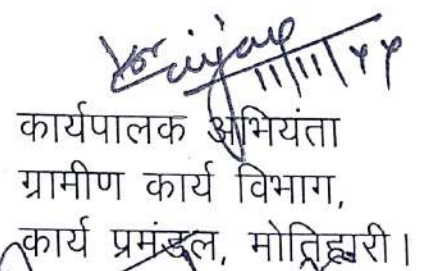 11/11/24
कार्यपालक अभियंता
ग्रामीण कार्य विभाग,
कार्य प्रमंडल, मोतिहारी।